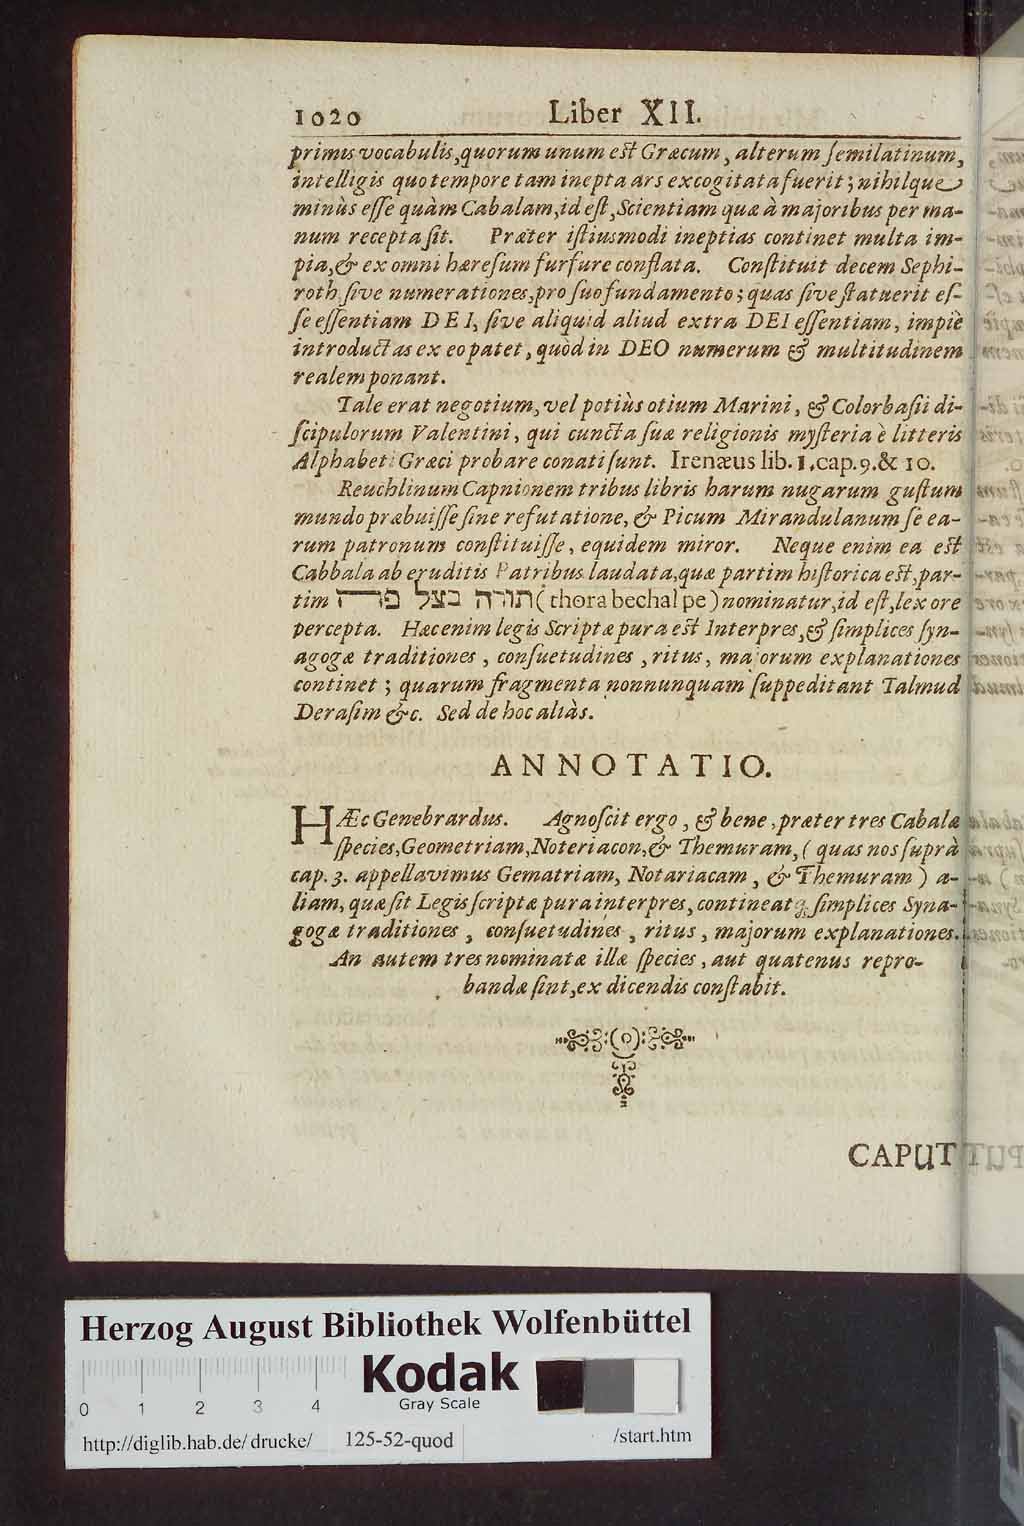 1020 Liber XII.
primis vocabulis, quorum unum est Græcum, alterum ſemilatinum,
intelligis quo tempore tam inepta ars excogitata fuerit; nihilque
minùs eſſe quàm Cabalam, id eſt, Scientiam quæ à majoribus per ma-
num recepta ſit. Præter iſtiusmodi ineptias continet multa im-
pia, & ex omni hæreſum furfure conflata. Conſtituit decem Sephi-
roth ſive numerationes, pro ſuo fundamento; quas ſive ſtatuerit eſ-
ſe eſſentiam DEI, ſive aliquid aliud extra DEI eſſentiam, impiè
introductas ex eo patet, quòd in DEO numerum & multitudinem
realem ponant.
Tale erat negotium, vel potiùs otium Marini, & Colorbaſii di-
ſcipulorum Valentini, qui cuncta ſuæ religionis myſteria è litteris
Alphabeti Græci probare conati ſunt. Irenæus lib. 1. cap. 9. & 10.
Reuchlinum Capnionem tribus libris harum nugarum guſtum
mundo præbuiſſe ſine refutatione, & Picum Mirandulanum ſe ea-
rum patronum conſtituiſſe, equidem miror. Neque enim ea est
Cabbala ab eruditis Patribus laudata, quæ partim hiſtorica est, par-
tim תורה בצל פה (thora bechal pe) nominatur, id eſt, lex ore
percepta. Hæc enim legis Scriptæ pura est Interpres, & ſimplices ſyn-
agogæ traditiones, conſuetudines, ritus, majorum explanationes
continet; quarum fragmenta nonnunquam ſuppeditant Talmud
Deraſim &c. Sed de hoc aliàs.
ANNOTATIO.
HÆc Genebrardus. Agnoſcit ergo, & bene, præter tres Cabalæ
ſpecies, Geometriam, Noteriacon, & Themuram, (quas nos ſuprà
cap. 3. appellavimus Gematriam, Notariacam, & Themuram) a-
liam, quæ ſit Legis ſcriptæ pura interpres, contineatq; ſimplices Syna-
gogæ traditiones, conſuetudines, ritus, majorum explanationes.
An autem tres nominatæ illæ ſpecies, aut quatenus repro-
bandæ ſint, ex dicendis conſtabit.
CAPUT
Herzog August Bibliothek Wolfenbüttel
Kodak
Gray Scale
0 1 2 3 4
http://diglib.hab.de/drucke/ 125-52-quod /start.htm